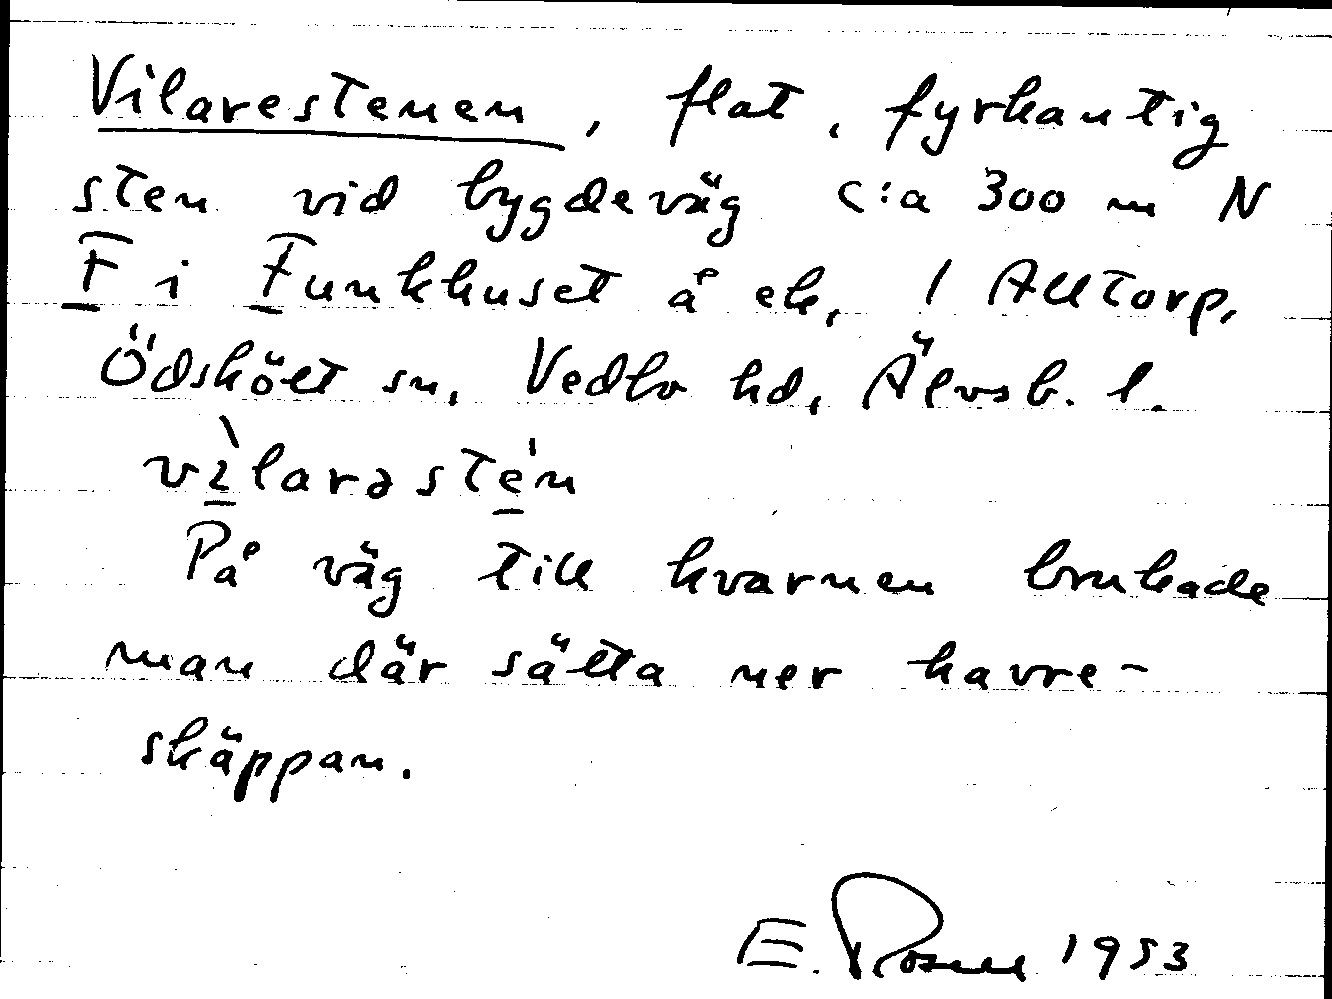 Vilarestenen, flat, fyrkantig
sten vid bygdeväg c:a 300 m N
F i Funkhuset å ek, 1 Alltorp,
Ödskölt sn, Vedbo hd, Älvsb. l.
vìlarəsté̱n
På väg till kvarnen brukade
man där sätta ner havre-
skäppan.
E. Rosell 1953